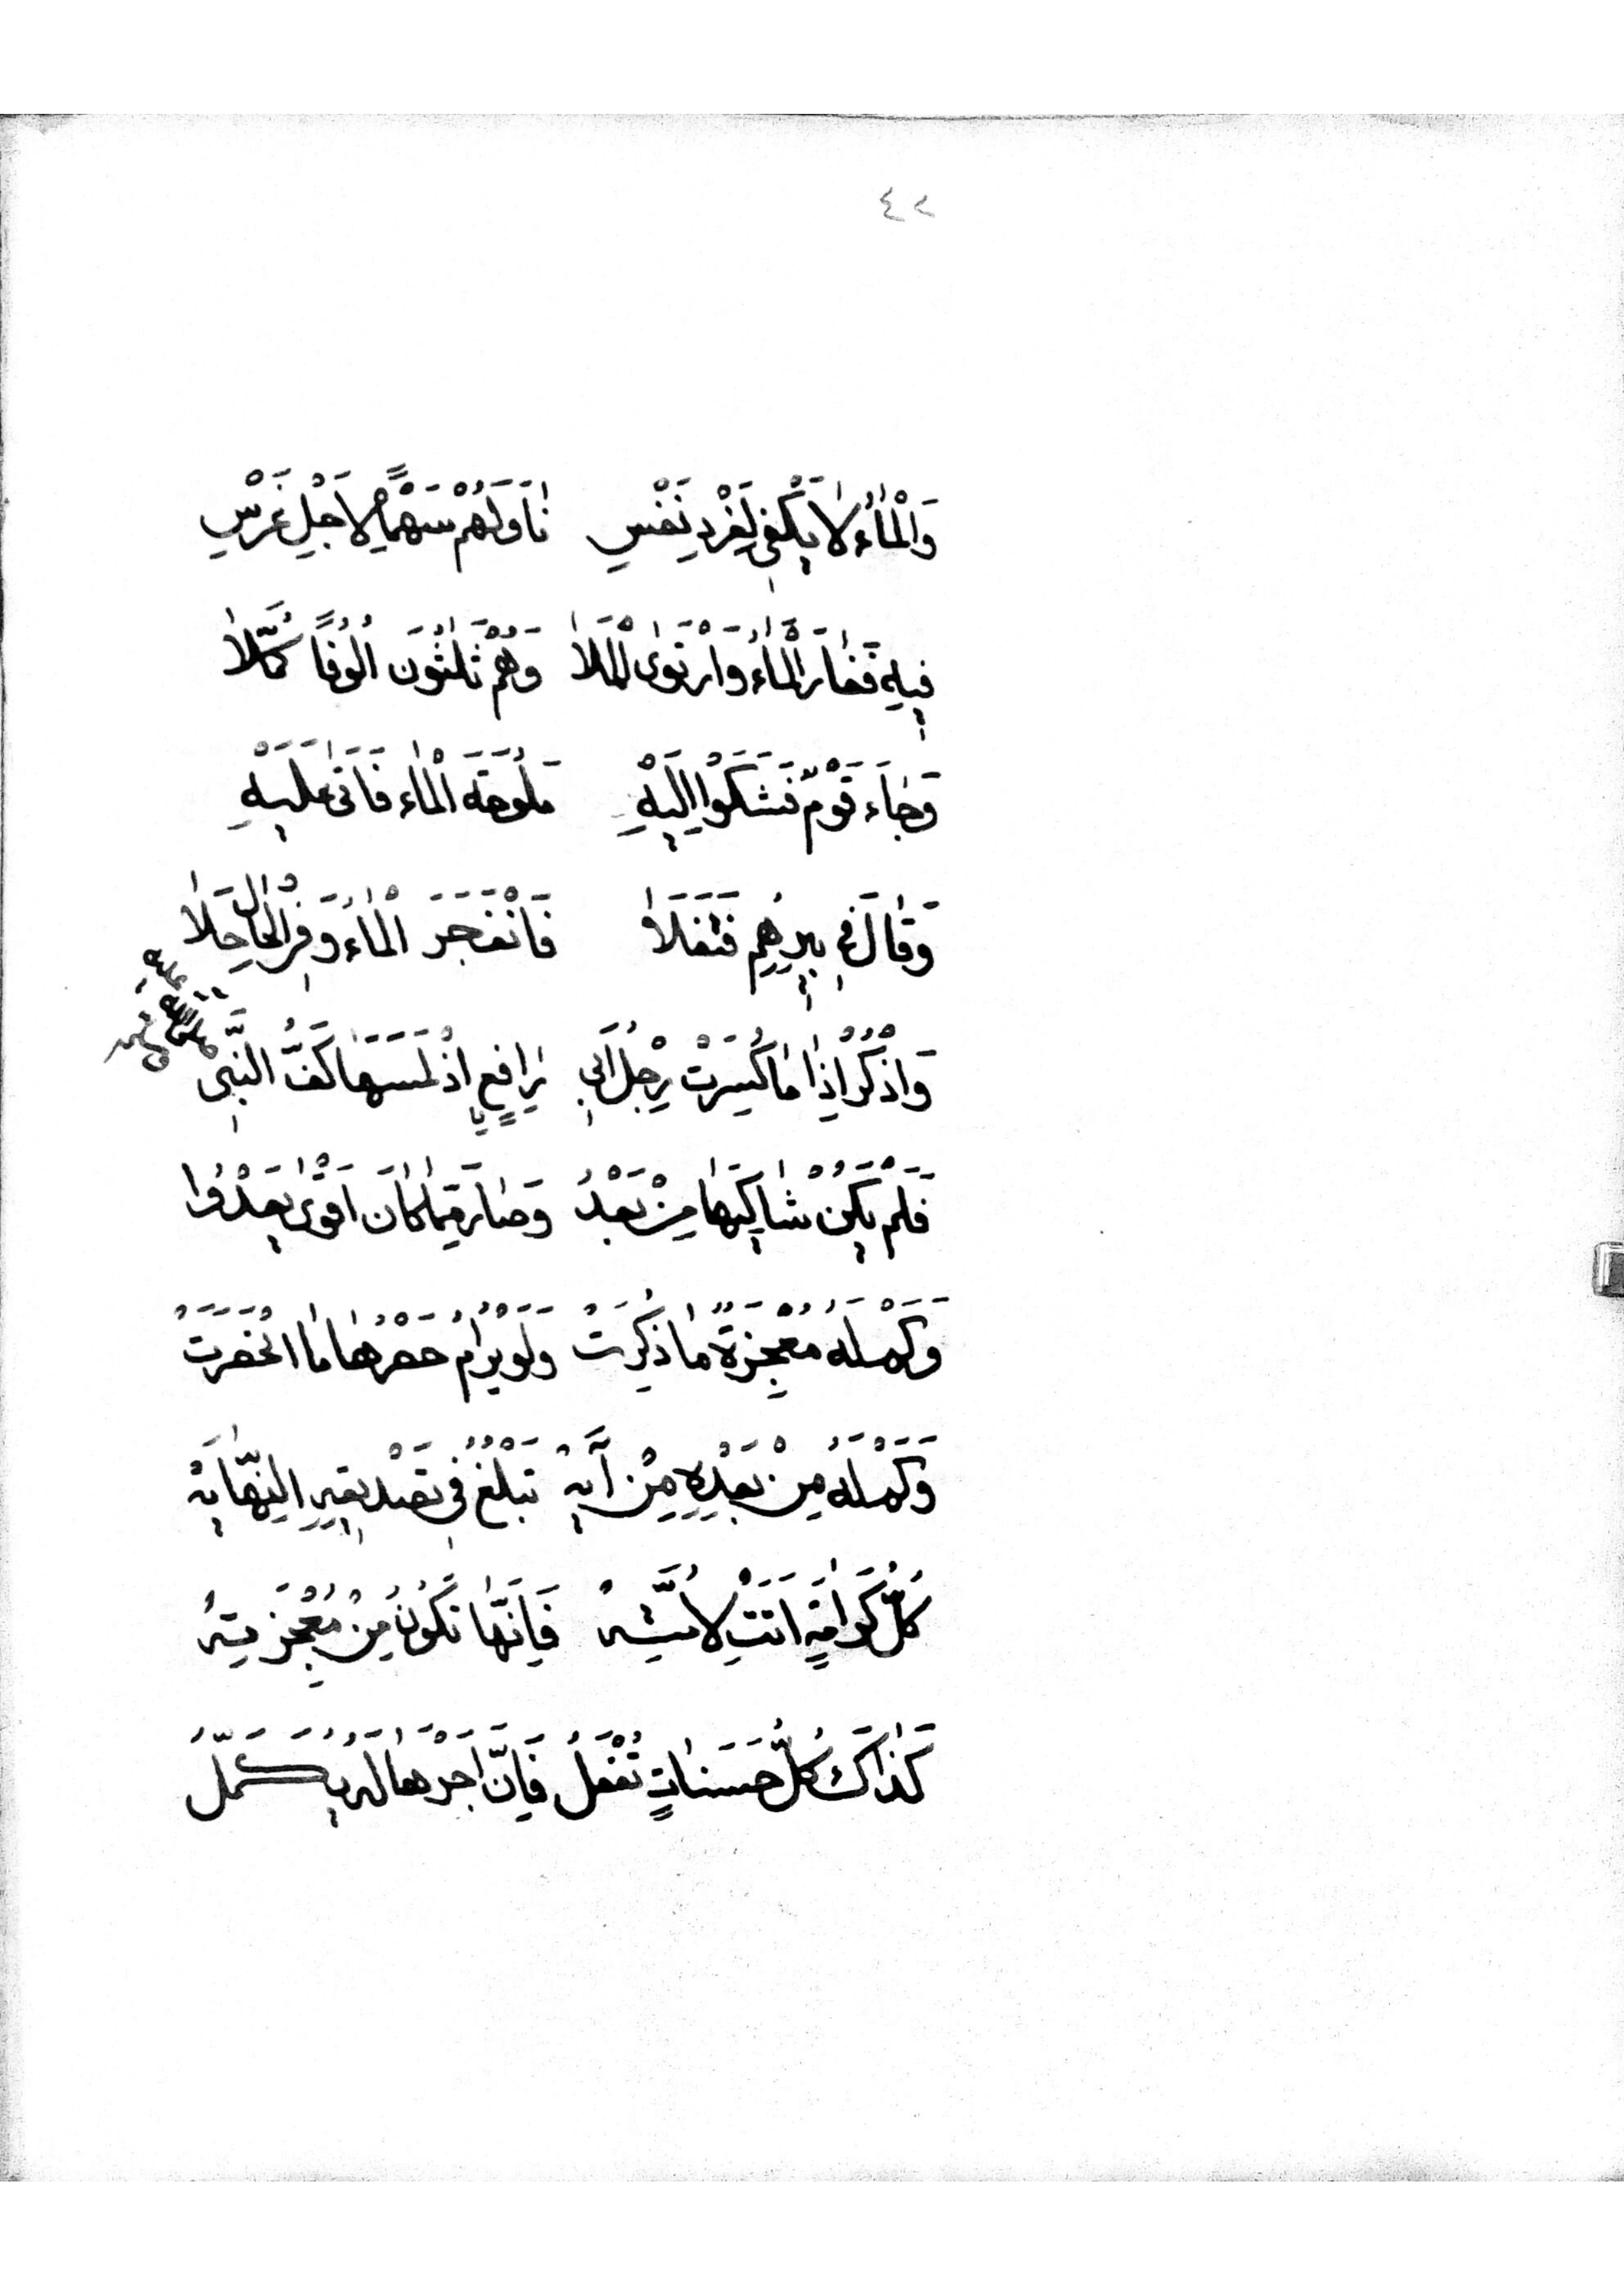 ٤٢
وَالْمَاءُ لَا يَكْفِي لِفَرْدِ نَفْسِ نَاوَلَهُمْ سَهْمًا لِأَجْلِ غَرْسِ
فِيهِ فَفَارَ الْمَاءُ وَارْتَوَى الْمَلَا وَهُمْ ثَلٰثُونَ اُلُوفًا كُمَّلَا
وَجَاءَ قَوْمٌ فَشَكَوْا اِلَيْهِ مُلُوحَةَ الْمَاءِ فَاَتَى عَلَيْهِ
وَقَالَ فِي بِيرِهِمِ فَتَفَلَا فَانْفَجَرَ الْمَاءُ وَفِي الْحَالِ حَلَا
وَاذْكُرْ اِذَا مَا كُسِرَتْ رِجْلُ اَبِي رَافِعٍ اِذْ لَمَسَهَا كَفُّ النَّبِي
فَلَمْ يَكُنْ شَاكِيَهَا مِنْ بَعْدُ وَصَارَ مِمَّا كَانَ اَقْوٰى يَعْدُوا
وَكَمْ لَهُ مُعْجِزَةٌ مَا ذُكِرَتْ وَلَوْ يُرَامُ حَصْرُهَا مَا انْحَصَرَتْ
وَكَمْ لَهُ مِنْ بَعْدِهِ مِنْ آيَهْ تَبْلُغُ فِي تَصْدِيقِهِ النِّهَايَهْ
كُلُّ كَرَامَةٍ اَتَتْ لِاُمَّتِهْ فَاِنَّهَا تَكُونُ مِنْ مُعْجِزَتِهْ
كَذَاكَ كُلُّ حَسَنَاتٍ تُفْعَلُ فَاِنَّ اَجْرَهَا لَهُ يُكَمَّلُ